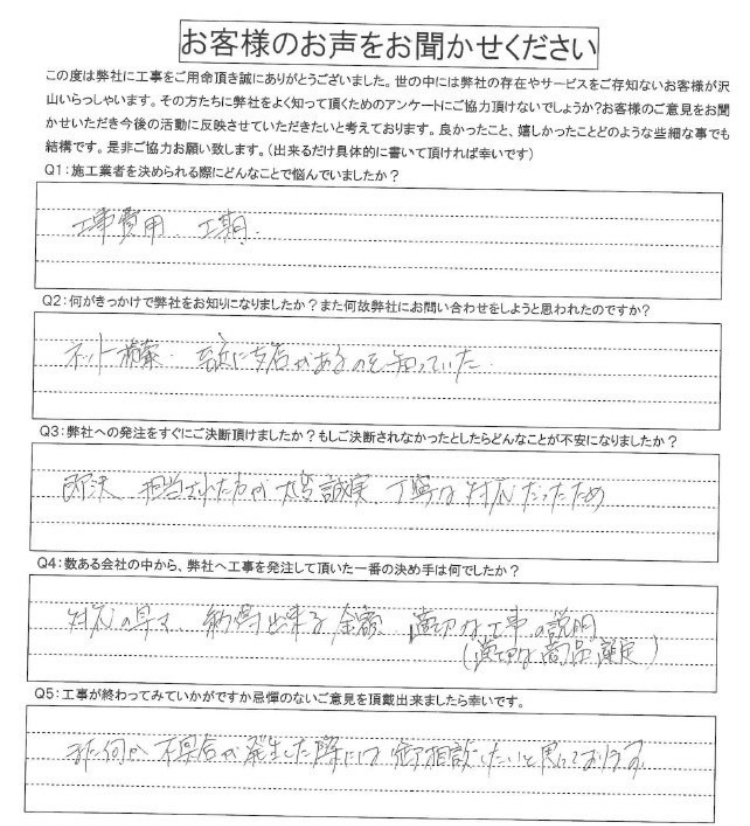 お客様のお声をお聞かせください
この度は弊社に工事をご用命頂き誠にありがとうございました。世の中には弊社の存在やサービスをご存知ないお客様が沢
山いらっしゃいます。その方たちに弊社をよく知って頂くためのアンケートにご協力頂けないでしょうか?お客様のご意見をお聞
かせいただき今後の活動に反映させていただきたいと考えております。良かったこと、嬉しかったことどのような些細な事でも
結構です。是非ご協力お願い致します。(出来るだけ具体的に書いて頂ければ幸いです)
Q1:施工業者を決められる際にどんなことで悩んでいましたか?
工事費用、工期.
Q2:何がきっかけで弊社をお知りになりましたか?また何故弊社にお問い合わせをしようと思われたのですか?
ネット検索. 近に支店があるのを知っていた.
Q3:弊社への発注をすぐにご決断頂けましたか?もしご決断されなかったとしたらどんなことが不安になりましたか?
即決 担当された方が大変誠実、丁寧な対応だったため
Q4:数ある会社の中から、弊社へ工事を発注して頂いた一番の決め手は何でしたか?
対応の早さ、納得出来る金額 適切な工事の説明
(適切な商品選定)
Q5:工事が終わってみていかがですか忌憚のないご意見を頂戴出来ましたら幸いです。
また何か不具合が発生した際には御相談したいと思っております.